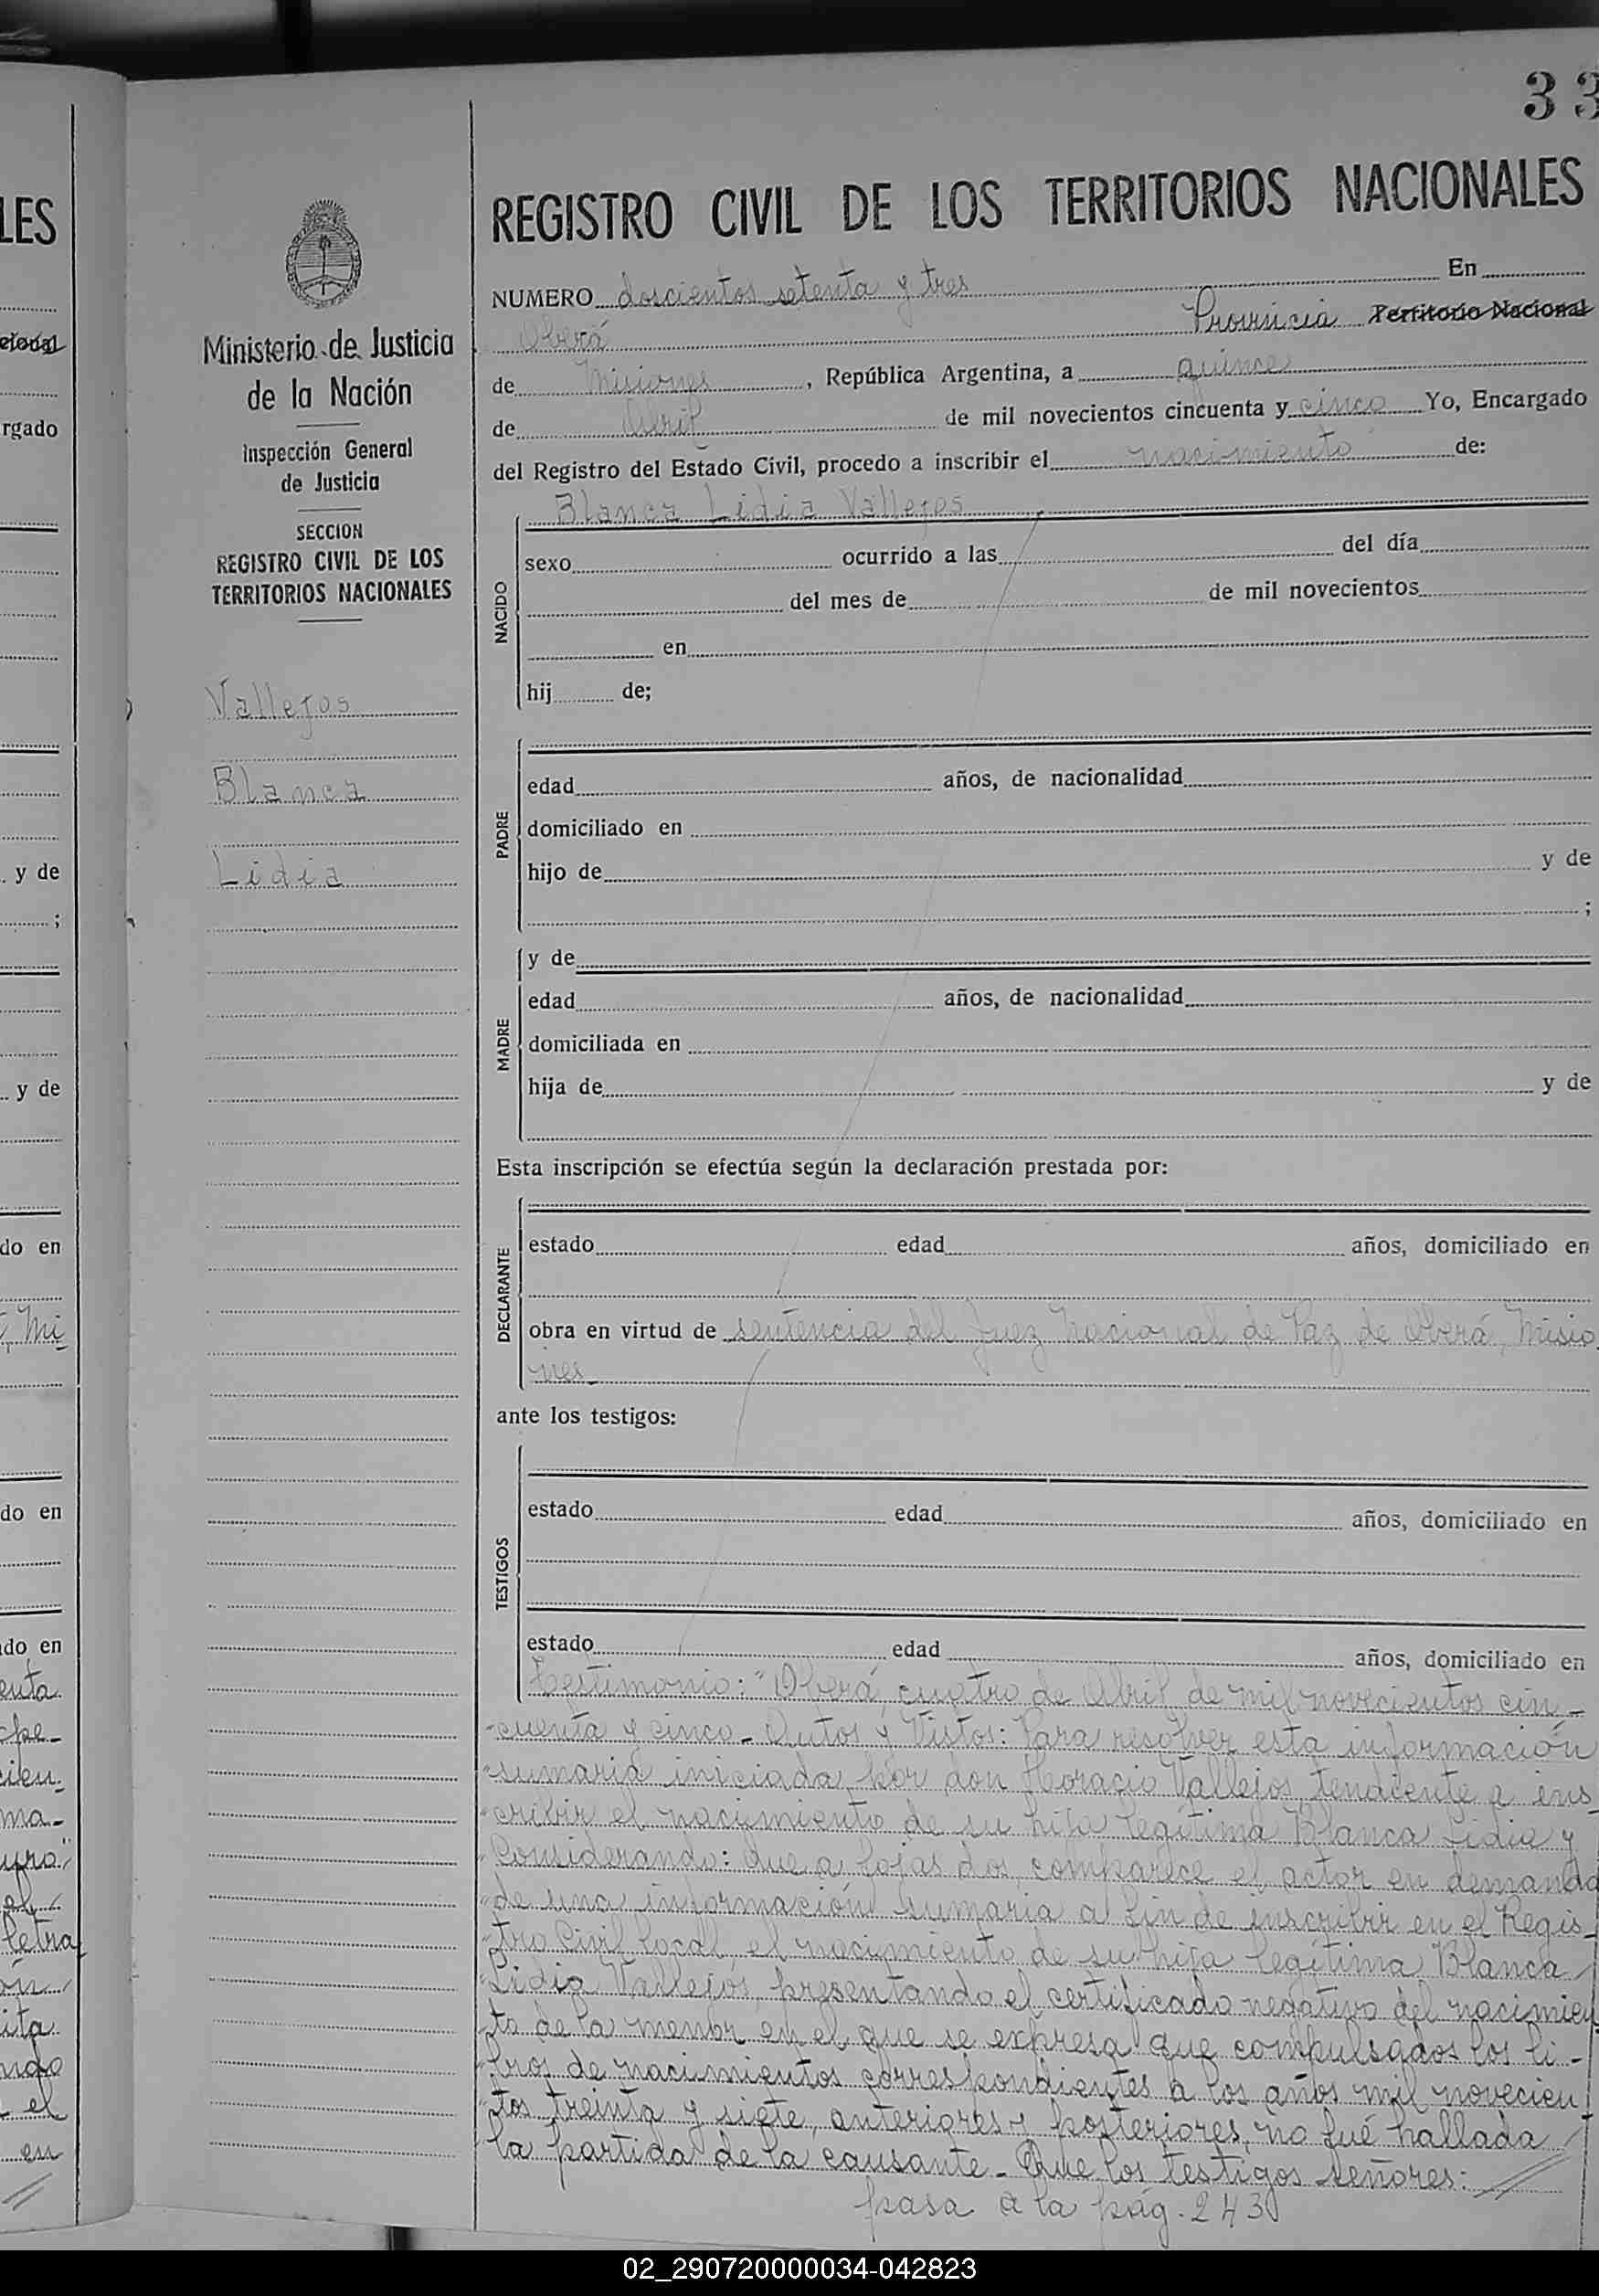 33
REGISTRO CIVIL DE LOS TERRITORIOS NACIONALES
NUMERO doscientos setenta y tres En
Oberá Provincia Territorio Nacional
de Misiones, República Argentina, a quince
de Abril de mil novecientos cincuenta y cinco Yo, Encargado
del Registro del Estado Civil, procedo a inscribir el nacimiento de:
Blanca Lidia Vallejos
NACIDO
sexo ocurrido a las del día
del mes de de mil novecientos
en
hij de;
PADRE
edad años, de nacionalidad
domiciliado en
hijo de y de
;
MADRE
y de
edad años, de nacionalidad
domiciliada en
hija de y de
Esta inscripción se efectúa según la declaración prestada por:
DECLARANTE
estado edad años, domiciliado en
obra en virtud de sentencia del Juez Nacional de Paz de Oberá, Misio
nes_
ante los testigos:
TESTIGOS
estado edad años, domiciliado en
estado edad años, domiciliado en
Testimonio: "Oberá, cuatro de Abril de mil novecientos cin_
"cuenta y cinco_ Autos y Vistos: Para resolver esta información
"sumaria iniciada por don Horacio Vallejos tendiente a ins_
"cribir el nacimiento de su hija legítima Blanca Lidia y
"Considerando: Que a fojas dos comparece el actor en demanda
"de una información sumaria a fin de inscribir en el Regis_
"tro Civil local el nacimiento de su hija legítima Blanca
"Lidia Vallejos presentando el certificado negativo del nacimien
"to de la menor en el que se expresa que compulsados los li_
"bros de nacimientos correspondientes a los años mil novecien_
"tos treinta y siete, anteriores y posteriores, no fué hallada
"la partida de la causante_ Que los testigos señores:
pasa a la pág. 243
Ministerio de Justicia
de la Nación
Inspección General
de Justicia
SECCION
REGISTRO CIVIL DE LOS
TERRITORIOS NACIONALES
Vallejos
Blanca
Lidia
LES
cional
rgado
y de
;
y de
do en
, Mi
do en
do en
enta
cien_
ma_
el
letra
ón
ndo
el
en
02_290720000034-042823